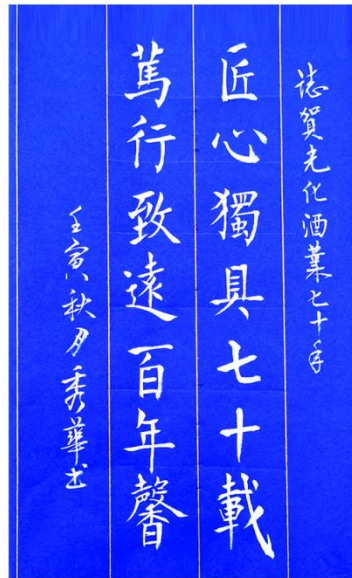 誌賀光化酒業七十年
匠心獨具七十載
篤行致遠一百年馨
壬寅秋月秀華书